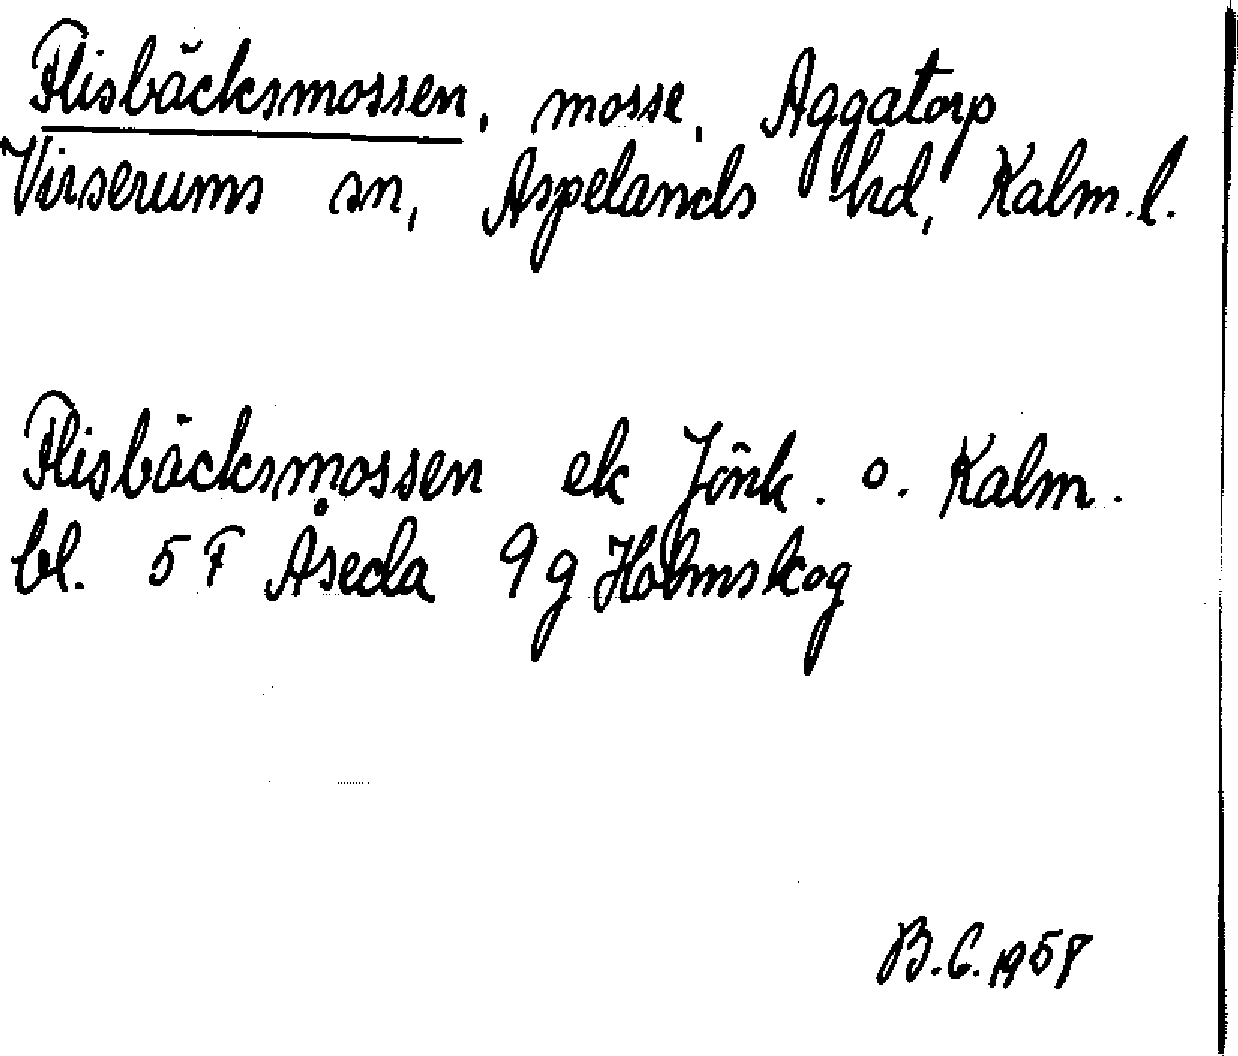 Flisbäcksmossen, mosse, Aggatorp
Virserums sn, Aspelands hd, Kalm. l.
Flisbäcksmossen ek Jönk. o. Kalm.
bl. 5 F Åseda 9 g Holmskog
B.C. 1958